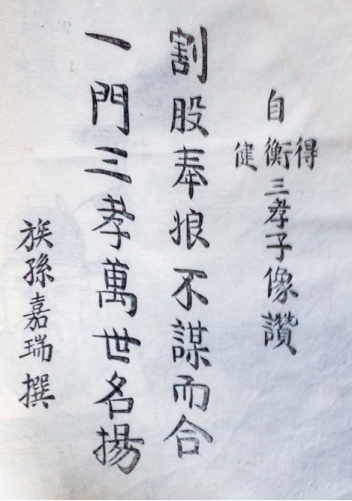 自得衡健三孝子像讚
割股奉娘不謀而合
一門三孝萬世名揚
族孫嘉瑞撰